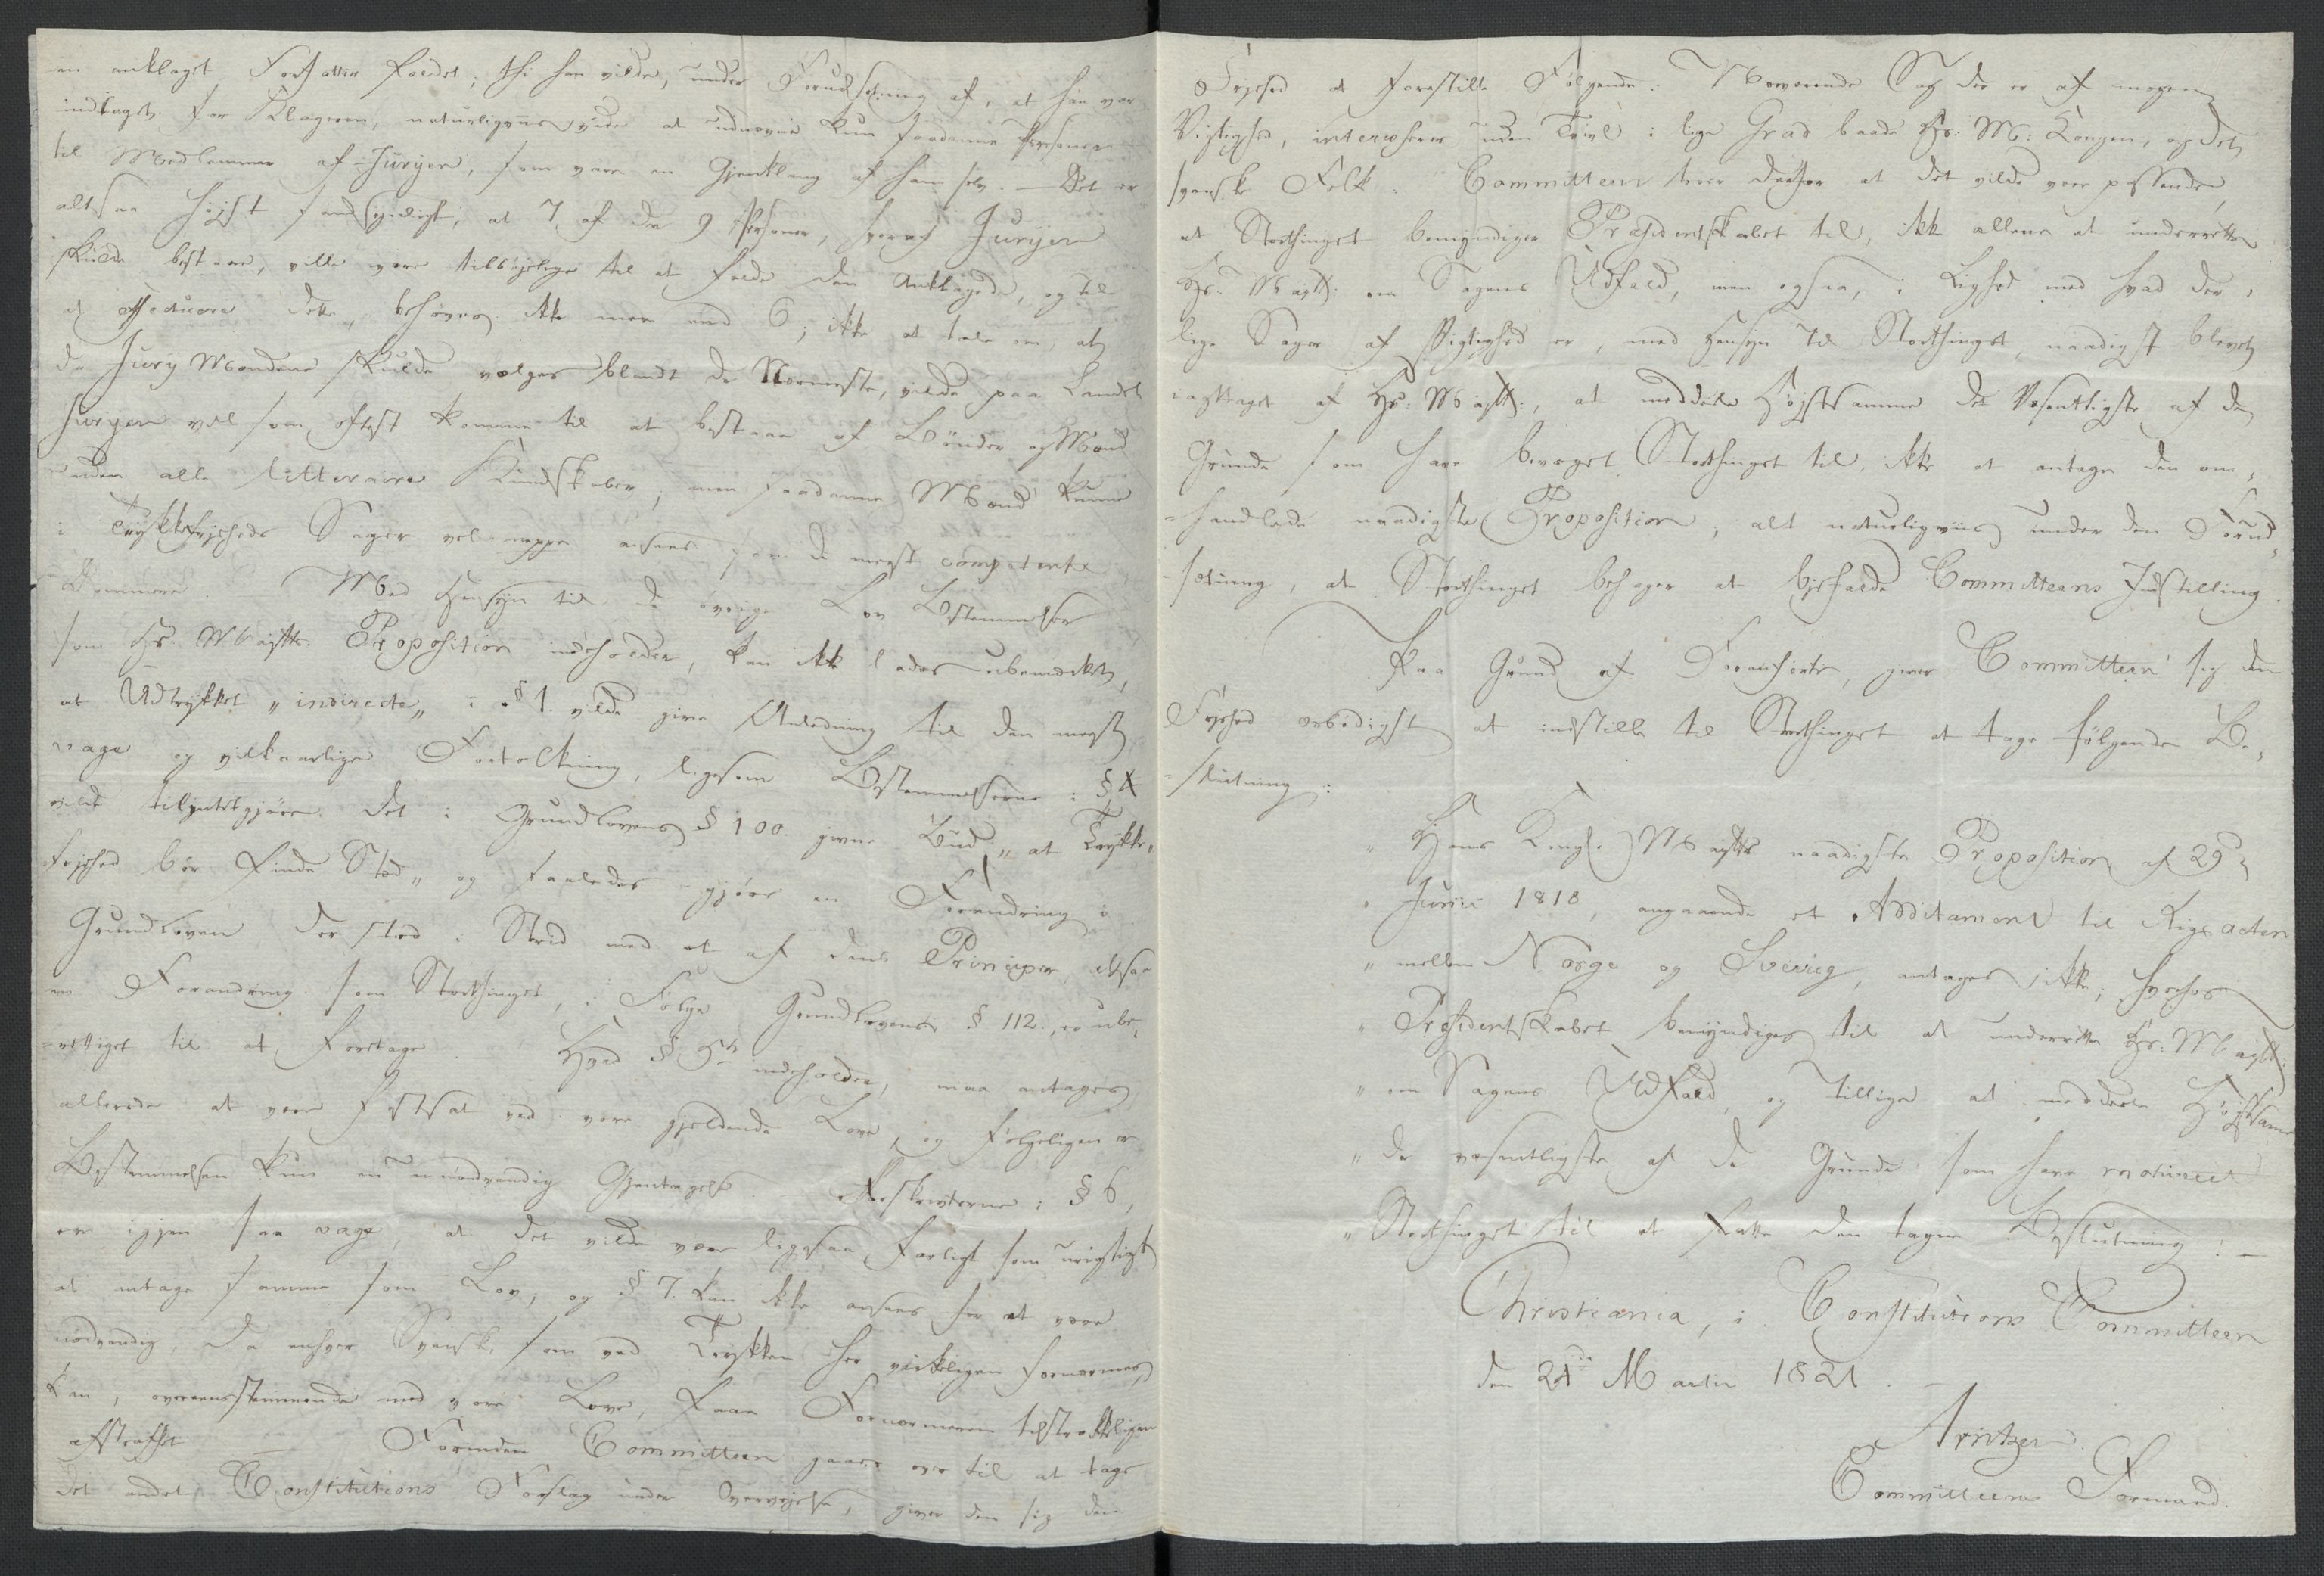 en anklaget Forfatter fældet; thi han vilde, under Forudsætning af, at han var
indtaget for Klageren, naturligviis vide at udnævne kun saadanne Personer
til Medlemmer af Juryen, som vare en Gjenklang af ham selv. — Det er
altsaa høyst sandsynligt, at 7 af de 9 Personer, hvoraf Juryen
skulde bestaae, ville være tilböjelige til at fælde den Anklagede, og til
at effectuere dette, behöves ikke mere end 6; ikke at tale om, at
da Jury Mændene skulde vælges blandt de Nærmeste, vilde paa Landet
Juryen vel som oftest komme til at bestaae af Bönder og Mænd
uden alle litteraire Kundskaber, men saadanne Mænd kunne
i Trykkefrjheds Sager vel neppe ansees som de meest competente
Dommere. Med Hensyn til de övrige Lov Bestemmelser
som Hs. Majsts. Proposition indeholder, kan ikke lades ubemærket,
at Udtrykket „indirecte„ i § 1. vilde give Anledning til den meest
vage og vilkaarlige Fortolkning, ligesom Bestemmelserne i § 4
vilde tilintetgjöre det i Grundlovens § 100. givne Bud „at Trykke-
frjhed bör finde Sted„ og saaledes gjöre en Forandring i
Grundloven der stod i Strid med et af dens Principer, altsaa
en Forandring som Storthinget, i Fölge Grundlovens § 112, er ube-
rettiget til at foretage. — Hvad § 5te indeholder, maa antages
allerede at være fastsat ved vore gjeldende Love, og fölgeligen er
Bestemmelsen kun en unödvendig Gjentagelse. Forskrivterne i § 6,
ere igjen saa vage, at det vilde være ligesaa farligt som urigtigt
at antage samme som Lov, og § 7. kan ikke ansees for at være
nödvendig, da enhver Svensk, som ved Trykken her virkeligen fornærmes,
kan, overeensstemmende med vore Love, faae Fornærmeren tilstrækkeligen
afstraffet. — Forinden Committeen gaaer over til at tage
det andet Constitutions Forslag under Overvejelse, giver den sig den
Frjhed at forestille Fölgende: Nærværende Sag der er af megen
Vigtighed, interesserer uden Tvivl i lige Grad baade Hs: M: Kongen, og det
svenske Folk. Committeen troer derfor at det vilde være passende,
at Storthinget bemyndiger Præsidentskabet til, ikke allene at underrette
Hs: Majst: om Sagens Udfald, men ogsaa, i Lighed med hvad der i
lige Sager af Vigtighed er, med Hensyn til Storthinget, naadigst blevet
iagttaget af Hs: Majst:, at meddele Höjstsamme det Væsentligste af de
Grunde som have bevæget Storthinget til, ikke at antage den om-
handlede naadigste Proposition; alt naturligviis under den Forud-
sætning, at Storthinget behager at bjefalde Committeens Indstilling.
Paa Grund af Foranförte, giver Committeen sig den
Frjhed ærbödigst at indstille til Storthinget at tage fölgende Be-
slutning:
„Hans Kongl. Majsts naadigste Proposition af 29de
„Junii 1818, angaaende et Additament til Rigsacten
„mellem Norge og Sverrig, antages ikke; hvorhos
„Præsidentskabet bemyndiges til at underrette Hs: Majst:
„om Sagens Udfald, og tillige at meddele Höjstsamme
„de væsentligste af de Grunde som have motiveret
„Storthinget til at fatte den tagne Beslutning: —
Christiania, i Constitutions Committeen
den 24de Martii 1821.
Arntzen
Committeens Formand.